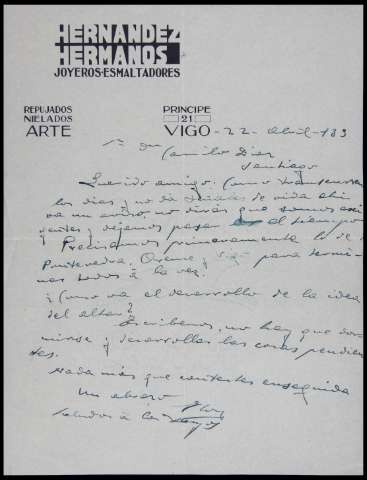 HERNANDEZ
HERMANOS
JOYEROS-ESMALTADORES
REPUJADOS
NIELADOS
ARTE
PRINCIPE
21
VIGO - 22 - Abril - 193
Sr Don
Camilo Diaz
Santiago
Querido amigo: Como transcurren
los dias y no da de vida ahi
va un aviso, no dirás que somos exi
gentes y dejamos pasar el tiempo
Precisamos primeramente lo de
Pontevedra, Orense y para termi-
nar todos á la vez.
¿Como va el desarrollo de la idea
del altar?
Escribenos, no hay que dor-
mirse y desarrollar las cosas pendien
tes.
Nada más que contestes enseguida
Un abrazo
Saludos á los